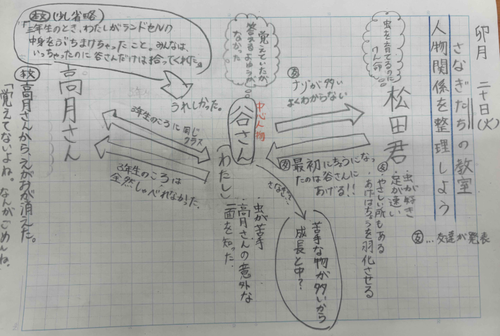 卯月 二十日(火)
さなぎたちの教室
人物関係を整理しよう
友…友達が発表
虫を育てるのに
けん命
松田君
虫が好き
足が速い
やさしい所もある
あげはちょうを羽化させる
友
ナゾが多い
よくわからない
友 最初にちょうになっ
たのは谷さんに
あげる!!
覚えていたが
なかった
中心人物
谷さん
(わたし)
虫が苦手
高月さんの意外な
一面を知った。
苦手な物が多いから
成長と中?
うれしかった。
3年生のころに同じ
クラス
3年生のころは
全然しゃべれなかった。
本文(少し省略)
「三年生のとき、わたしがランドセルの
中身をぶちまけちゃったこと。みんなは、
いっちゃったのに谷さんだけは拾ってくれた。」
高月さん
本文
高月さんから、えがおが消えた。
「覚えてないよね。なんかごめんね。